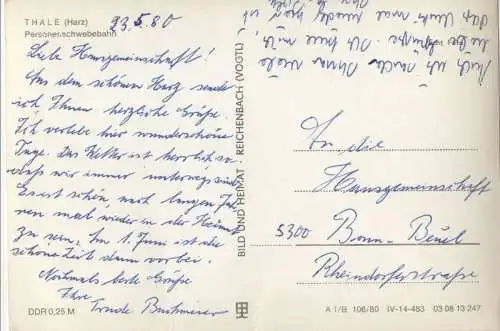 THALE (Harz)
Personenschwebebahn
23.5.80
Liebe Hausgemeinschaft!
Aus dem schönen Harz sende
ich Ihnen herzliche Grüße.
Ich verlebe hier wunderschöne
Tage. Das Wetter ist herrlich so
daß wir immer unterwegs sind.
Es ist schön, nach langen Jah
ren mal wieder in der Heimat
zu sein. Am 1. Juni ist die
schöne Zeit dann vorbei.
Nochmals beste Grüße
Ihre
Trude
DDR 0,25 M
BILD UND HEIMAT REICHENBACH (VOGTL)
Auch ich sende Ihnen viele
liebe Grüße. Ich freue mich,
daß Mutti mal wieder hier ist
An die
Hausgemeinschaft
5300 Bonn-Beuel
Rheindorferstraße
A 1/B 106/80 IV-14-483 03 08 13 247